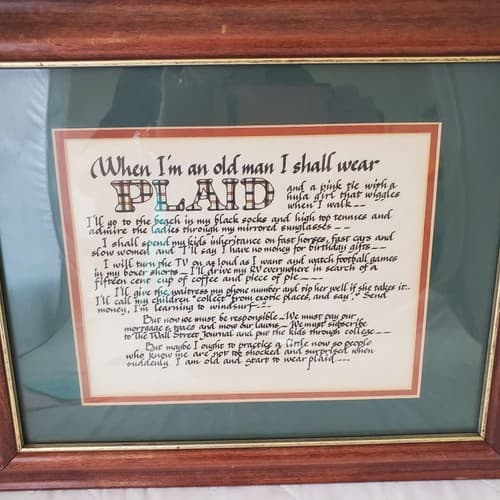 When I'm an old man I shall wear
PLAID and a pink tie with a
hula girl that wiggles
when I walk--
I'll go to the beach in my black socks and high top tennies and
admire the ladies through my mirrored sunglasses --
I shall spend my kids inheritance on fast horses, fast cars and
slow women and I'll say I have no money for birthday gifts --
I will turn the TV on as loud as I want and watch football games
in my boxer shorts -- I'll drive my RV everywhere in search of a
fifteen cent cup of coffee and piece of pie ---
I'll give the waitress my phone number and tip her well if she takes it..
I'll call my children "collect" from exotic places, and say, "Send
money, I'm learning to windsurf--.
But now we must be responsible -- We must pay our
mortgage & taxes and mow our lawns -- We must subscribe
to The Wall Street Journal and put the kids through college --
But maybe I ought to practice a little now so people
who know me are not too shocked and surprised when
suddenly I am old and start to wear plaid ---